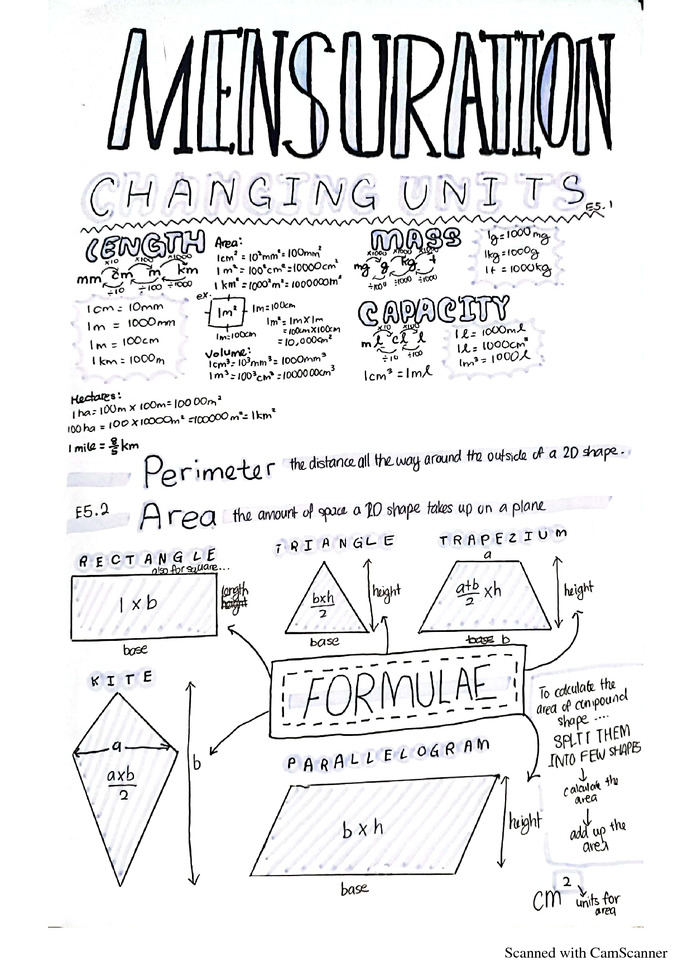 MENSURATION
CHANGING UNITS
E5.1
LENGTH
×10 ×100 ×1000
mm cm m km
÷10 ÷100 ÷1000
1cm = 10mm
1m = 1000mm
1m = 100cm
1km = 1000m
Area:
1cm² = 10²mm² = 100mm²
1m² = 100²cm² = 10000cm²
1km² = 1000²m² = 1000000m²
ex:
1m² 1m=100cm
1m=100cm
1m² = 1m×1m
= 100cm×100cm
= 10,000cm²
Volume:
1cm³ = 10³mm³ = 1000mm³
1m³ = 100³cm³ = 1000000cm³
MASS
×1000 ×1000 ×1000
mg g kg t
÷1000 ÷1000 ÷1000
1g = 1000mg
1kg = 1000g
1t = 1000kg
CAPACITY
×10 ×100
ml cl l
÷10 ÷100
1cm³ = 1ml
1l = 1000ml
1l = 1000cm³
1m³ = 1000l
Hectares:
1ha = 100m × 100m = 10000m²
100ha = 100 × 10000m² = 100000m² = 1km²
1 mile = 8/5 km
Perimeter the distance all the way around the outside of a 2D shape.
E5.2 Area the amount of space a 2D shape takes up on a plane
RECTANGLE
also for square...
l × b
length
height
base
TRIANGLE
b×h/2
height
base
TRAPEZIUM
a
a+b/2 ×h
height
base b
KITE
a
a×b/2
b
FORMULAE
PARALLELOGRAM
b × h
height
base
To calculate the
area of compound
shape ....
SPLIT THEM
INTO FEW SHAPES
calculate the
area
add up the
area
cm²
units for
area
Scanned with CamScanner